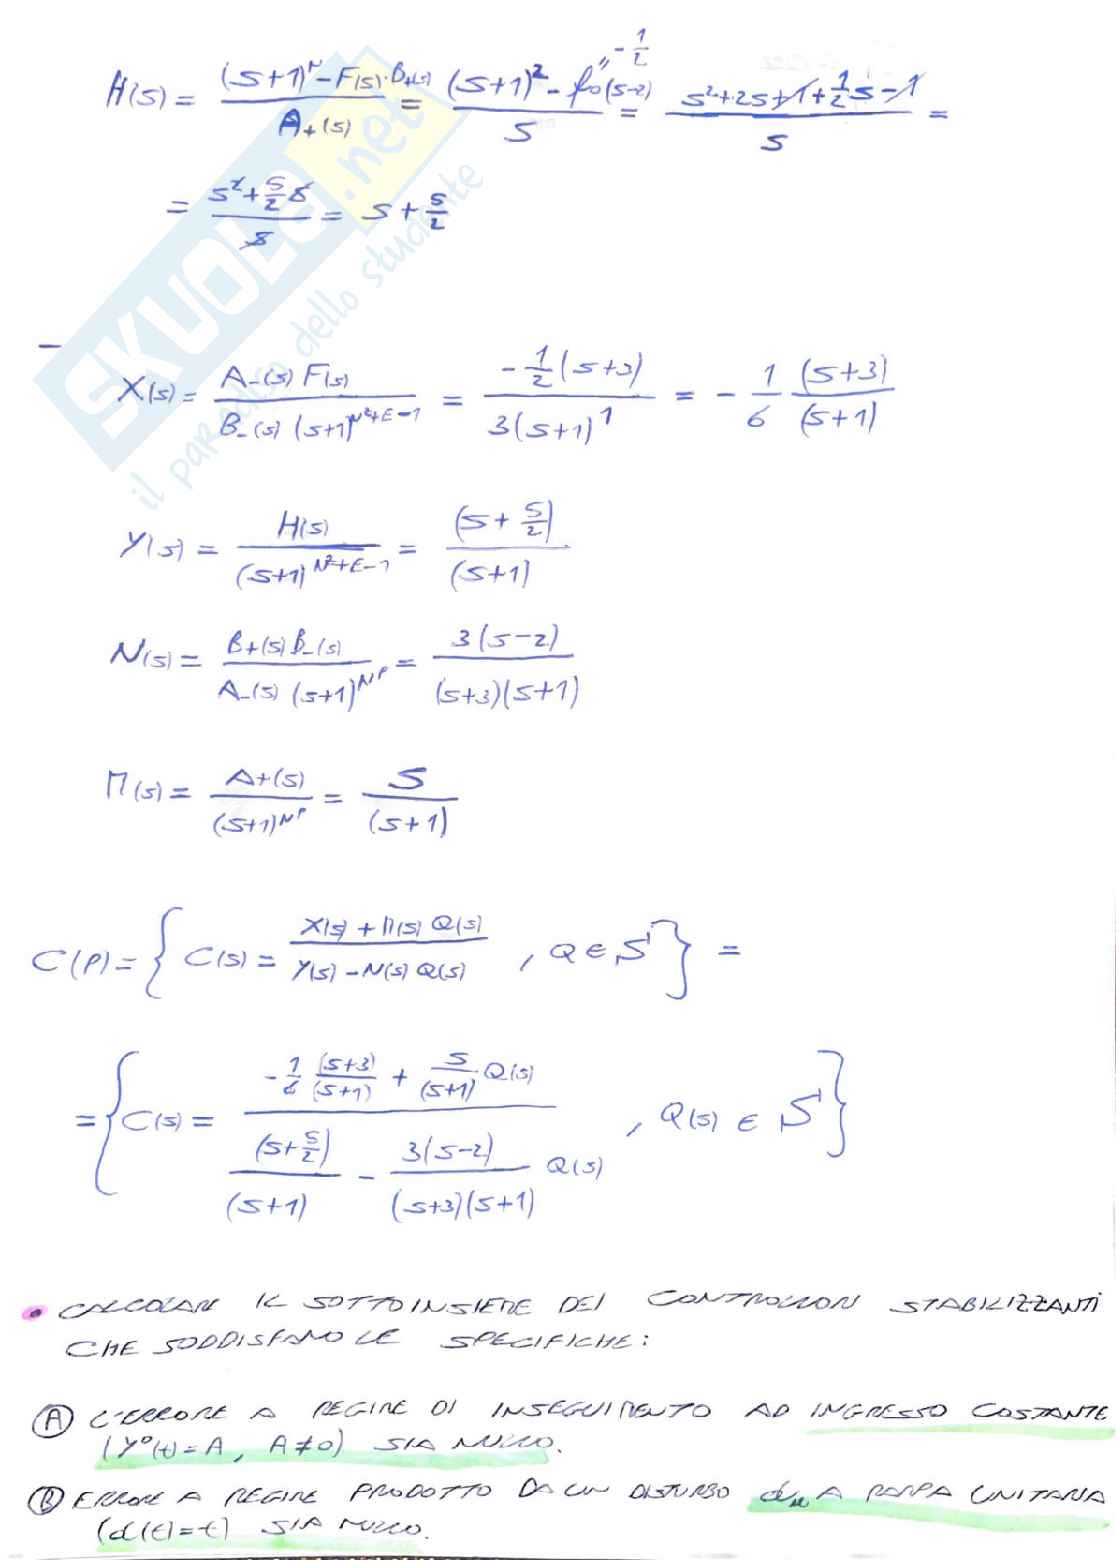 H(s) = ((s+1)^N - F(s)·B+(s))/(A+(s)) = ((s+1)^2 - f0(s-2))/s = (s^2+2s+1+1/2 s-1)/s =
" -1/2
= (s^2+5/2 s)/s = s + 5/2
X(s) = (A-(s) F(s))/(B-(s) (s+1)^(N^2+E-1)) = (-1/2(s+3))/(3(s+1)^1) = - 1/6 (s+3)/(s+1)
Y(s) = H(s)/((s+1)^(N^2+E-1)) = (s+5/2)/(s+1)
N(s) = (B+(s) B-(s))/(A-(s) (s+1)^NP) = 3(s-2)/((s+3)(s+1))
M(s) = A+(s)/((s+1)^NP) = s/(s+1)
C(P) = { C(s) = (X(s) + M(s) Q(s))/(Y(s) - N(s) Q(s)) , Q ∈ S } =
= { C(s) = (-1/6 (s+3)/(s+1) + s/(s+1) Q(s))/((s+5/2)/(s+1) - 3(s-2)/((s+3)(s+1)) Q(s)) , Q(s) ∈ S }
• CALCOLARE IL SOTTOINSIEME DEI CONTROLLORI STABILIZZANTI
CHE SODDISFANO LE SPECIFICHE:
(A) L'ERRORE A REGIME DI INSEGUIMENTO AD INGRESSO COSTANTE
(Y°(t)=A, A≠0) SIA NULLO.
(B) ERRORE A REGIME PRODOTTO DA UN DISTURBO du A RAMPA UNITARIA
(d(t)=t) SIA NULLO.
SKUOLA.net
il paradiso dello studente